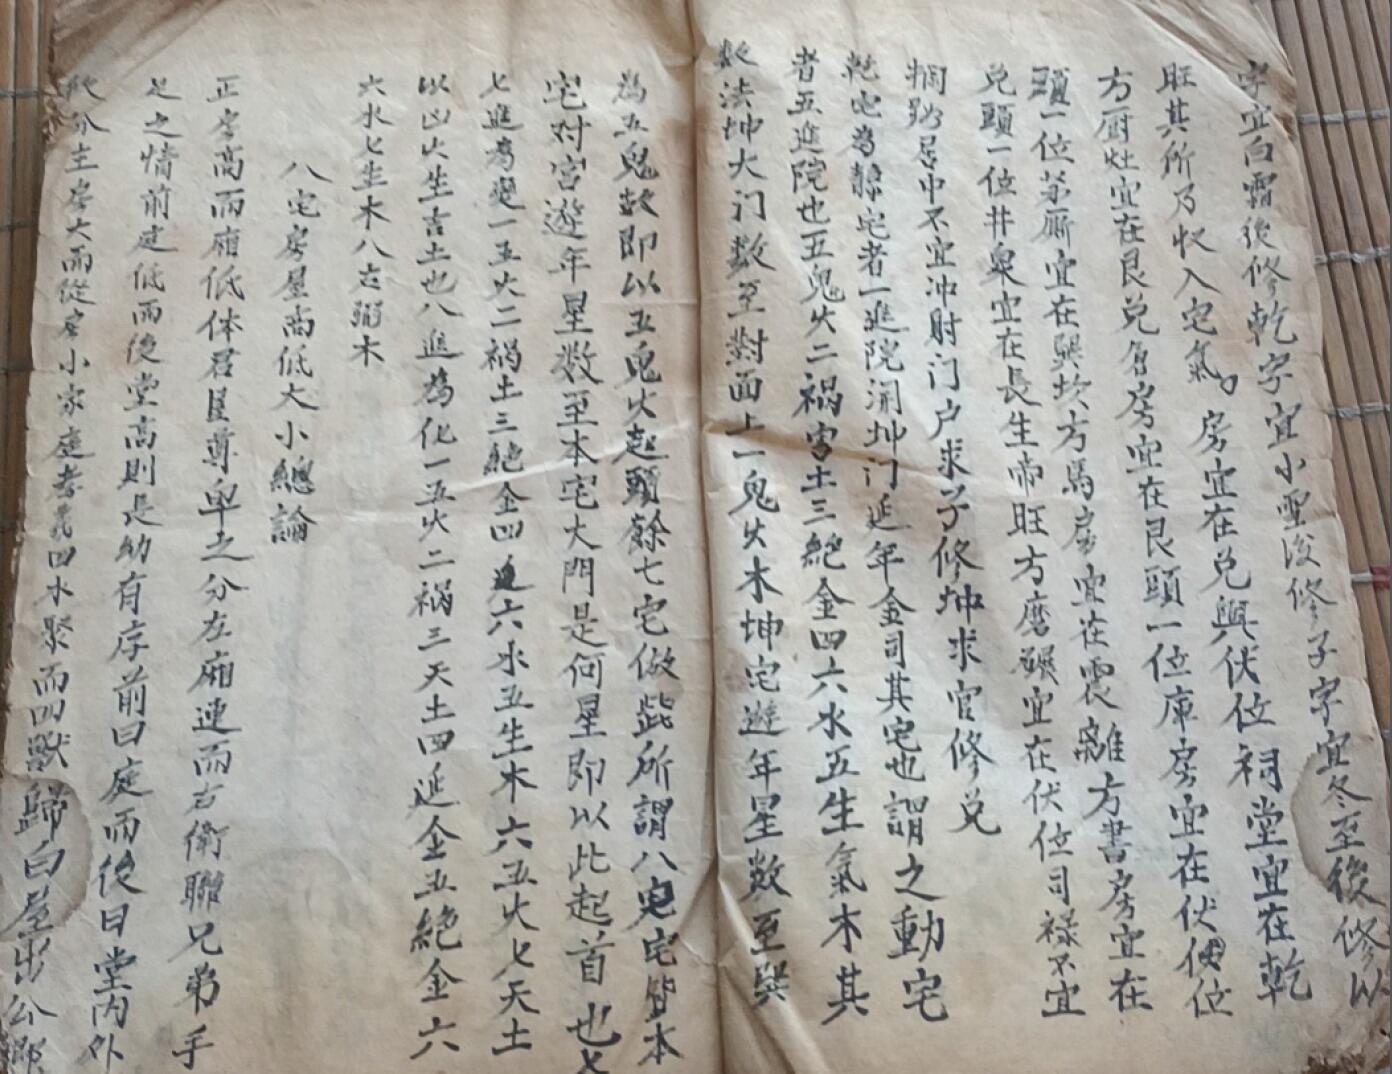 字宜白露後修乾字宜小雪後修子字宜冬至後修以
旺其所乃收入宅氣房宜在兌與伏位祠堂宜在乾
方厨灶宜在艮兌倉房宜在艮頭一位庫房宜在伏位
頭一位茅厠宜在巽坎方馬房宜在震離方書房宜在
兌頭一位井泉宜在長生帝旺方磨碾宜在伏位司祿不宜
居中不宜冲射门户求子修坤求官修兑
乾宅為靜宅者一進院開坤门延年金司其宅也謂之動宅
者五進院也五鬼火二祸害土三絶金四六水五生氣木其
数法坤大门数至對面上一鬼火木坤宅遊年星数至巽
為五鬼故即以五鬼火起頭餘七宅倣此所謂八宅皆本
宅对宮遊年星数至本宅大門是何星即以此起首也
七進為變一五火二祸土三絶金四六水五生木六五火七天土
以凶火生吉土也八進為化一五火二祸三天土四延金五絶金六
六水七生木八古弼木
八宅房屋高低大小總論
正房高而廂低体君臣尊卑之分左廂連而右衛聯兄弟手
足之情前庭低而後堂高則長幼有序前曰庭而後曰堂内外
攸分主房大而從房小家庭孝義四水聚而四獸歸白屋出公卿